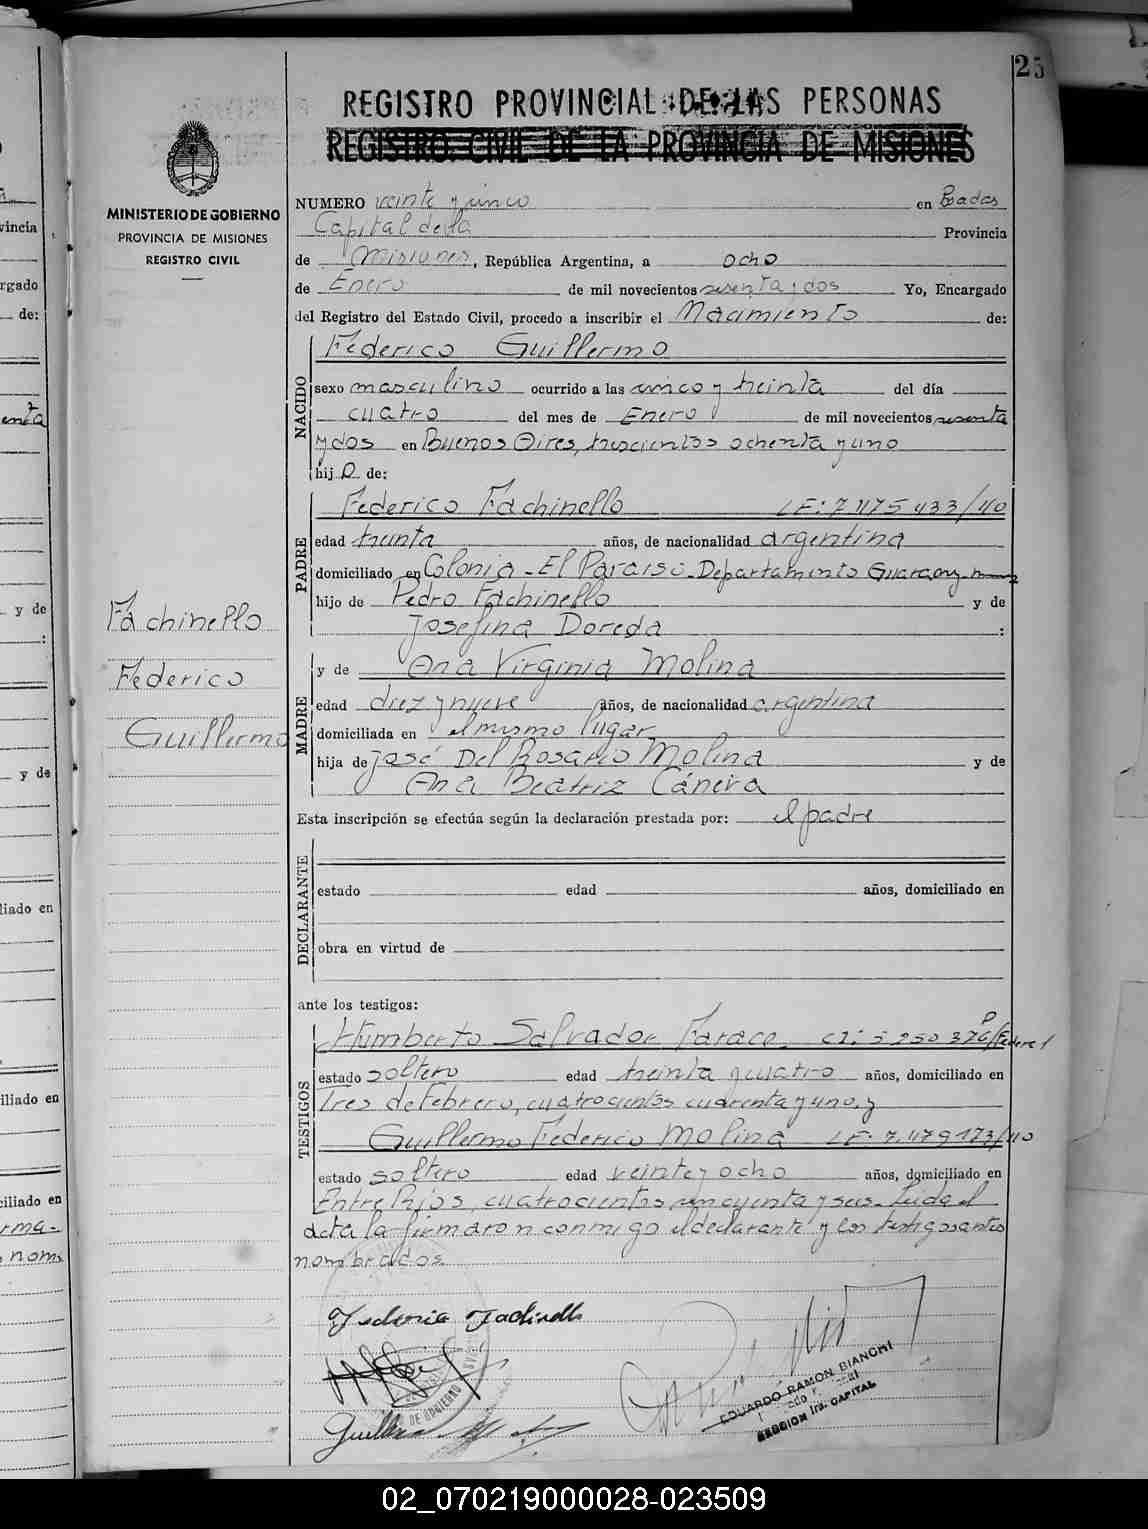 25
REGISTRO PROVINCIAL DE LAS PERSONAS
REGISTRO CIVIL DE LA PROVINCIA DE MISIONES
MINISTERIO DE GOBIERNO
PROVINCIA DE MISIONES
REGISTRO CIVIL
NUMERO veinte y cinco en Posadas
Capital de la Provincia
de Misiones, República Argentina, a ocho
de Enero de mil novecientos sesenta y dos Yo, Encargado
del Registro del Estado Civil, procedo a inscribir el Nacimiento de:
NACIDO
Federico Guillermo
sexo masculino ocurrido a las cinco y treinta del día
cuatro del mes de Enero de mil novecientos sesenta
y dos en Buenos Aires, trescientos ochenta y uno
hijo de:
PADRE
Federico Fachinello LE: 7.475.433/40
edad treinta años, de nacionalidad argentina
domiciliado en Colonia - El Paraiso - Departamento Guarany
hijo de Pedro Fachinello y de
Josefina Doreda :
MADRE
y de Ana Virginia Molina
edad diez y nueve años, de nacionalidad argentina
domiciliada en el mismo lugar
hija de José Del Rosario Molina y de
Ana Beatriz Cáneva
Fachinello
Federico
Guillermo
Esta inscripción se efectúa según la declaración prestada por: el padre
DECLARANTE
estado edad años, domiciliado en
obra en virtud de
ante los testigos:
TESTIGOS
Humberto Salvador Farace. CI: 5.250.376/P Federal
estado soltero edad treinta y cuatro años, domiciliado en
Tres de Febrero, cuatrocientos cuarenta y uno, y
Guillermo Federico Molina LE: 7.479.173/40
estado soltero edad veinte y ocho años, domiciliado en
Entre Ríos, cuatrocientos cincuenta y seis. Leida el
acta la firmaron conmigo el declarante y los testigos antes
nombrados.
Federico Fachinello
EDUARDO RAMON BIANCHI
SECCION 1ra. CAPITAL
02_070219000028-023509